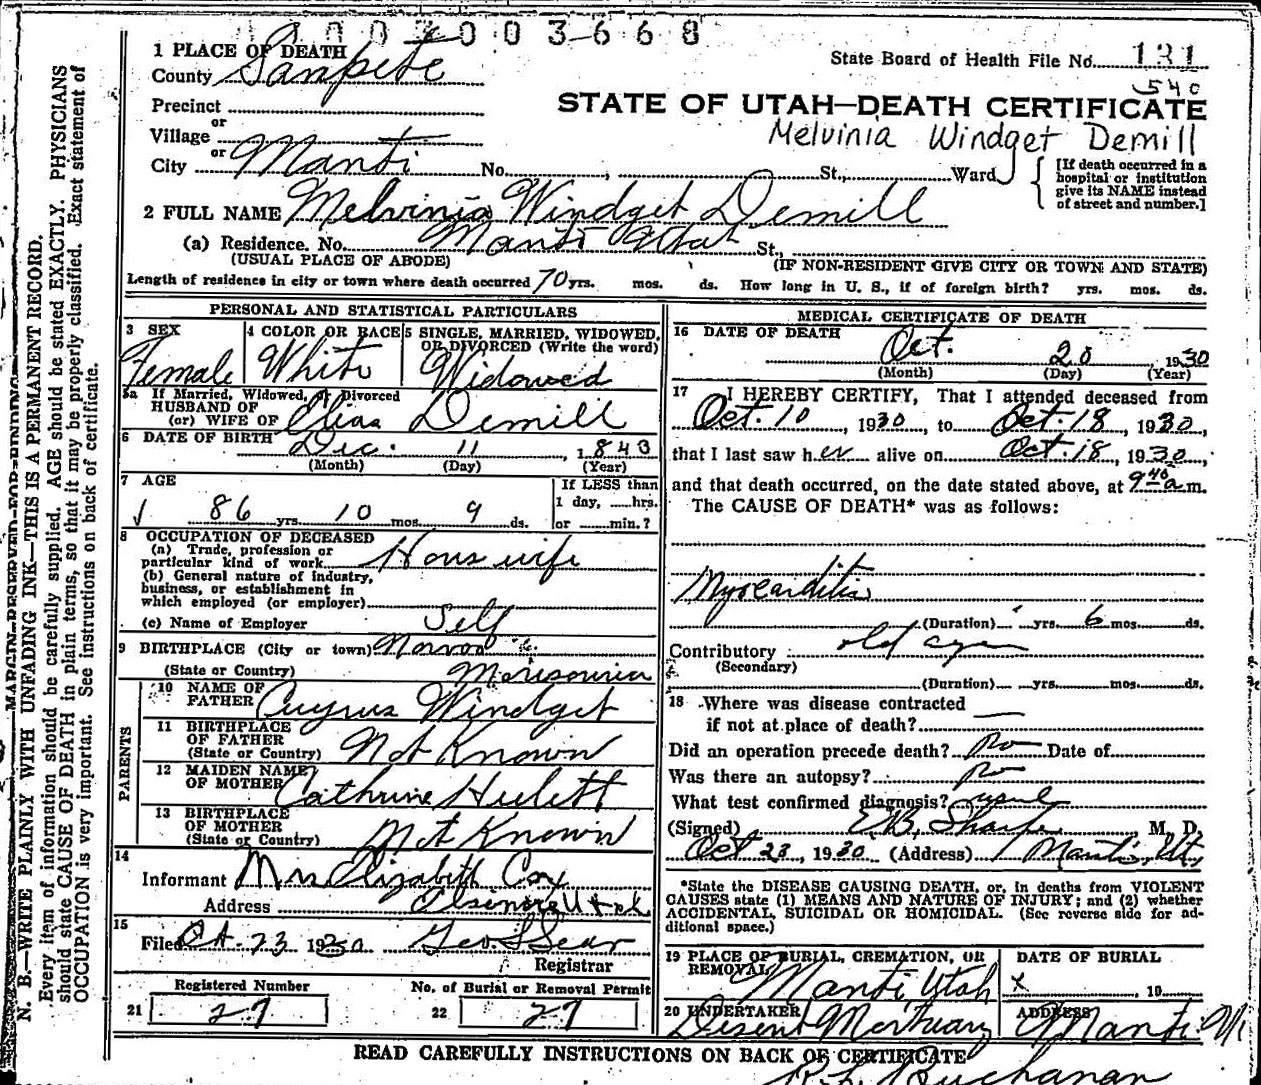 003003668
1 PLACE OF DEATH
County Sanpete
State Board of Health File No. 131
540
Precinct
or
Village
or
City Manti No. , St., Ward
STATE OF UTAH—DEATH CERTIFICATE
Melvinia Windget Demill
[If death occurred in a hospital or institution give its NAME instead of street and number.]
2 FULL NAME Melvinia Windget Demill
(a) Residence. No. Manti Utah St.,
(USUAL PLACE OF ABODE) (IF NON-RESIDENT GIVE CITY OR TOWN AND STATE)
Length of residence in city or town where death occurred 70 yrs. mos. ds. How long in U. S., if of foreign birth? yrs. mos. ds.
PERSONAL AND STATISTICAL PARTICULARS
3 SEX 4 COLOR OR RACE 5 SINGLE, MARRIED, WIDOWED, OR DIVORCED (Write the word)
Female White Widowed
5a If Married, Widowed, or Divorced
HUSBAND OF
(or) WIFE OF Elias Demill
6 DATE OF BIRTH Dec. 11, 1843
(Month) (Day) (Year)
7 AGE If LESS than
1 day, hrs.
86 yrs. 10 mos. 9 ds. or min.?
8 OCCUPATION OF DECEASED
(a) Trade, profession or
particular kind of work Hous wife
(b) General nature of industry,
business, or establishment in
which employed (or employer)
(c) Name of Employer Self
9 BIRTHPLACE (City or town)
(State or Country)
PARENTS
10 NAME OF
FATHER Cuyrus Windget
11 BIRTHPLACE
OF FATHER
(State or Country) Not Known
12 MAIDEN NAME
OF MOTHER Cathrine Hulett
13 BIRTHPLACE
OF MOTHER
(State or Country) Not Known
14
Informant Mrs Elizabeth Cox
Address Utah
15
Filed Oct. 23 1930 Geo. S Sear
Registrar
Registered Number No. of Burial or Removal Permit
21 27 22 27
MEDICAL CERTIFICATE OF DEATH
16 DATE OF DEATH
Oct. 20 1930
(Month) (Day) (Year)
17 I HEREBY CERTIFY, That I attended deceased from
Oct. 10, 1930, to Oct. 18, 1930,
that I last saw her alive on Oct. 18, 1930,
and that death occurred, on the date stated above, at 9 40 a.m.
The CAUSE OF DEATH* was as follows:
Myocarditis
(Duration) yrs. 6 mos. ds.
Contributory old age
(Secondary)
(Duration) yrs. mos. ds.
18 Where was disease contracted
if not at place of death?
Did an operation precede death? no Date of
Was there an autopsy? no
What test confirmed diagnosis? usual
(Signed) M. D.
Oct 23, 1930 (Address) Manti, Ut,
*State the DISEASE CAUSING DEATH, or, in deaths from VIOLENT
CAUSES state (1) MEANS AND NATURE OF INJURY; and (2) whether
ACCIDENTAL, SUICIDAL OR HOMICIDAL. (See reverse side for ad-
ditional space.)
19 PLACE OF BURIAL, CREMATION, OR REMOVAL DATE OF BURIAL
Manti Utah x , 19
20 UNDERTAKER ADDRESS
Deseret Mortuary Manti
READ CAREFULLY INSTRUCTIONS ON BACK OF CERTIFICATE
R. L. Buchanan
MARGIN RESERVED FOR BINDING
N. B.—WRITE PLAINLY WITH UNFADING INK—THIS IS A PERMANENT RECORD.
Every item of information should be carefully supplied. AGE should be stated EXACTLY. PHYSICIANS
should state CAUSE OF DEATH in plain terms, so that it may be properly classified. Exact statement of
OCCUPATION is very important. See instructions on back of certificate.